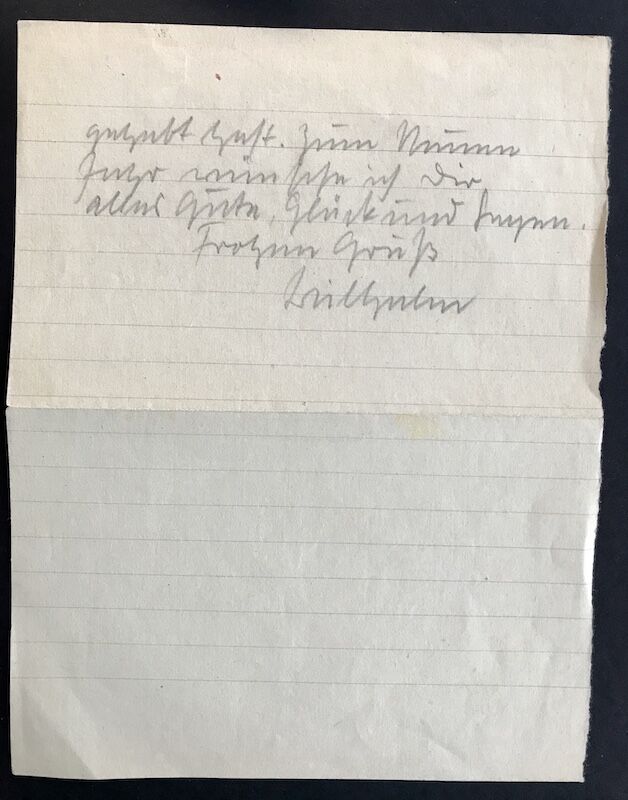 gehabt hast. Zum Neuen
Jahr wünsche ich Dir
alles Gute, Glück und Segen.
Frohen Gruß
Wilhelm